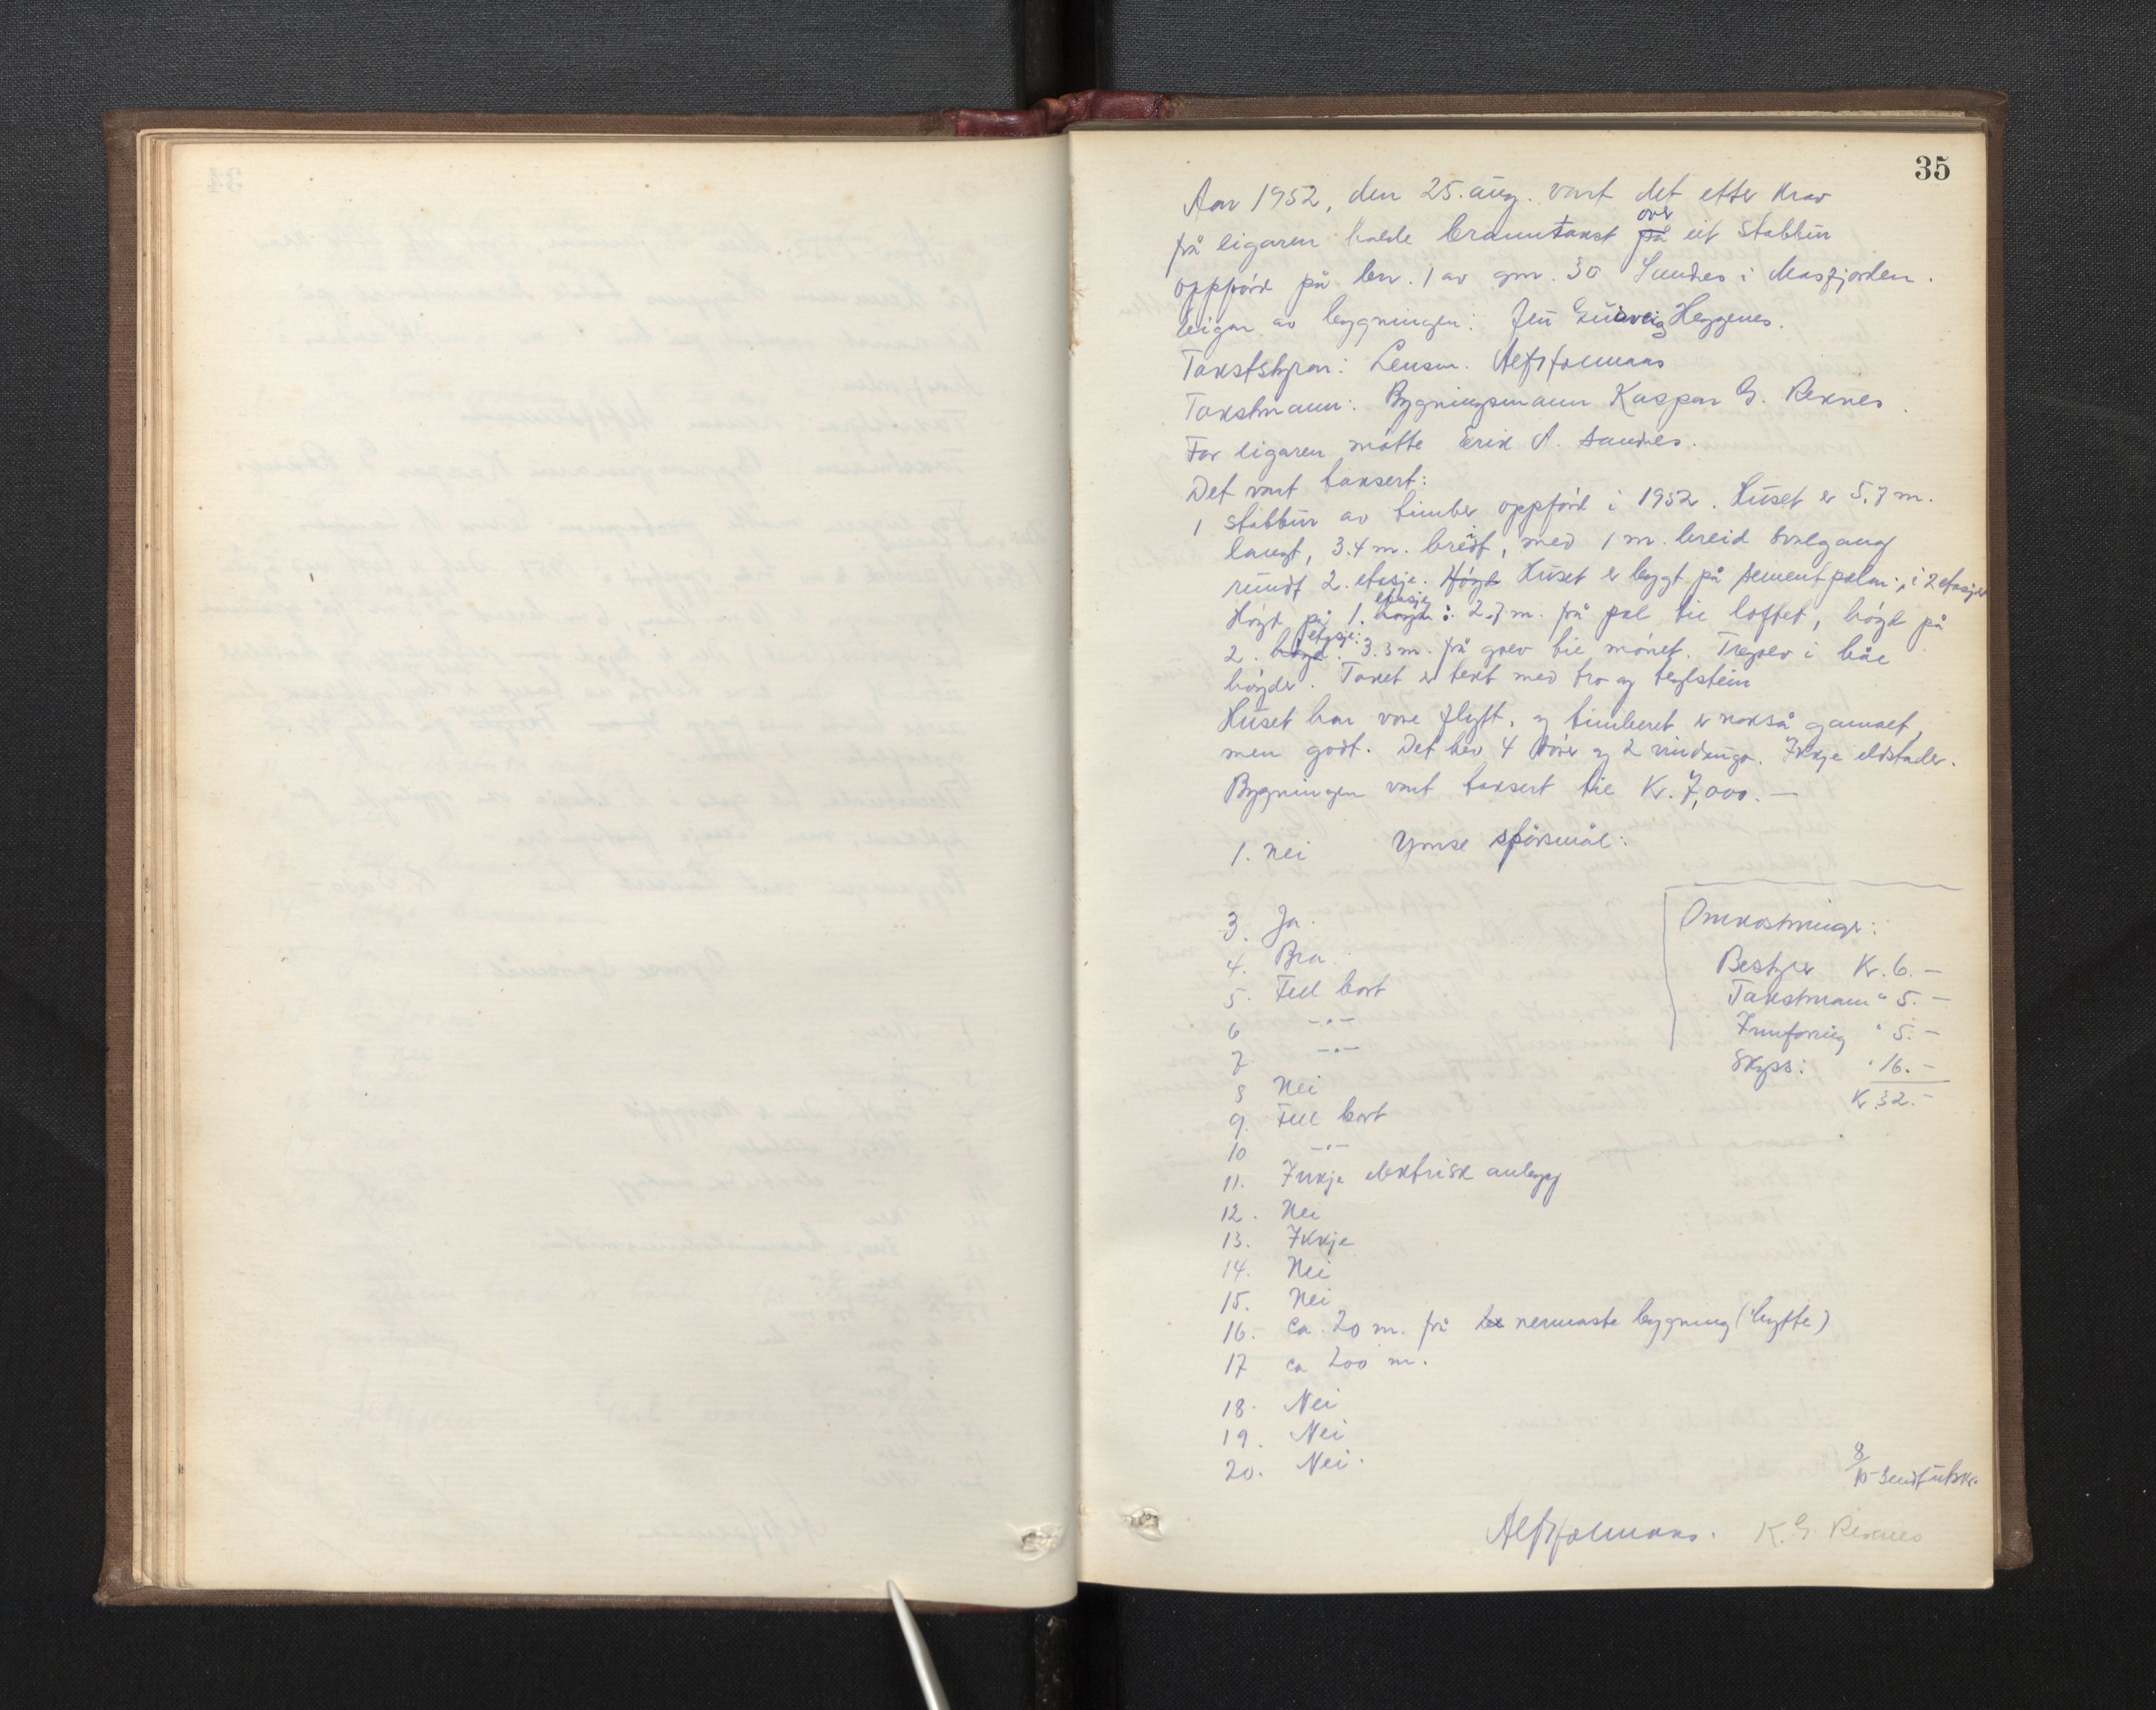 35
Aar 1952, den 25. aug. vart det etter krav
frå eigaren halde branntakst på over eit stabbur
oppförd på bnr. 1 av gnr. 30 Sandnes i Masfjorden.
Eigar av bygningen: Heggenes.
Takststyrar: Lensm.
Takstmann: Bygningsmann Kaspar G. Reknes.
For eigaren møtte Erik A. Sandnes.
Det vart taksert:
1 stabbur av timber oppförd i 1952. Huset er 5.7 m.
langt, 3.4 m. breidt, med 1 m. breid svalgang
rundt 2. etasje. Høgd Huset er bygt på sementpelar, i 2 etasjer
Høgd på 1. høgd etasje: 2.7 m. frå pel til loftet, høgd på
2. høgd etasje: 3.3 m. frå golv til mönet. Tregolv i båe
högder. Taket er tekt med tro og teglstein
Huset har vore flytt, og timberet er nokså gamalt,
men godt. Det hev 4 dører og 2 vindaugo. Ikkje eldstader.
Bygningen vart taksert til Kr. 7,000.—
Ymse spörsmål:
1. Nei
3. Ja.
4. Bra.
5. Fell bort
6 —"—
7 —"—
8 Nei
9. Fell bort
10 —"—
11. Inkje elektrisk anlegg
12. Nei
13. Ikkje
14. Nei
15. Nei
16. ca. 20 m. frå nermaste bygning (hytte)
17 ca 200 m.
18. Nei
19. Nei
20. Nei.
Omkostninger:
Bestyrer Kr. 6.—
Takstmann " 5.—
Innföring " 5.—
Skyss: " 16.—
Kr. 32.—
8/10 sendt utskr.
K. G. Reknes